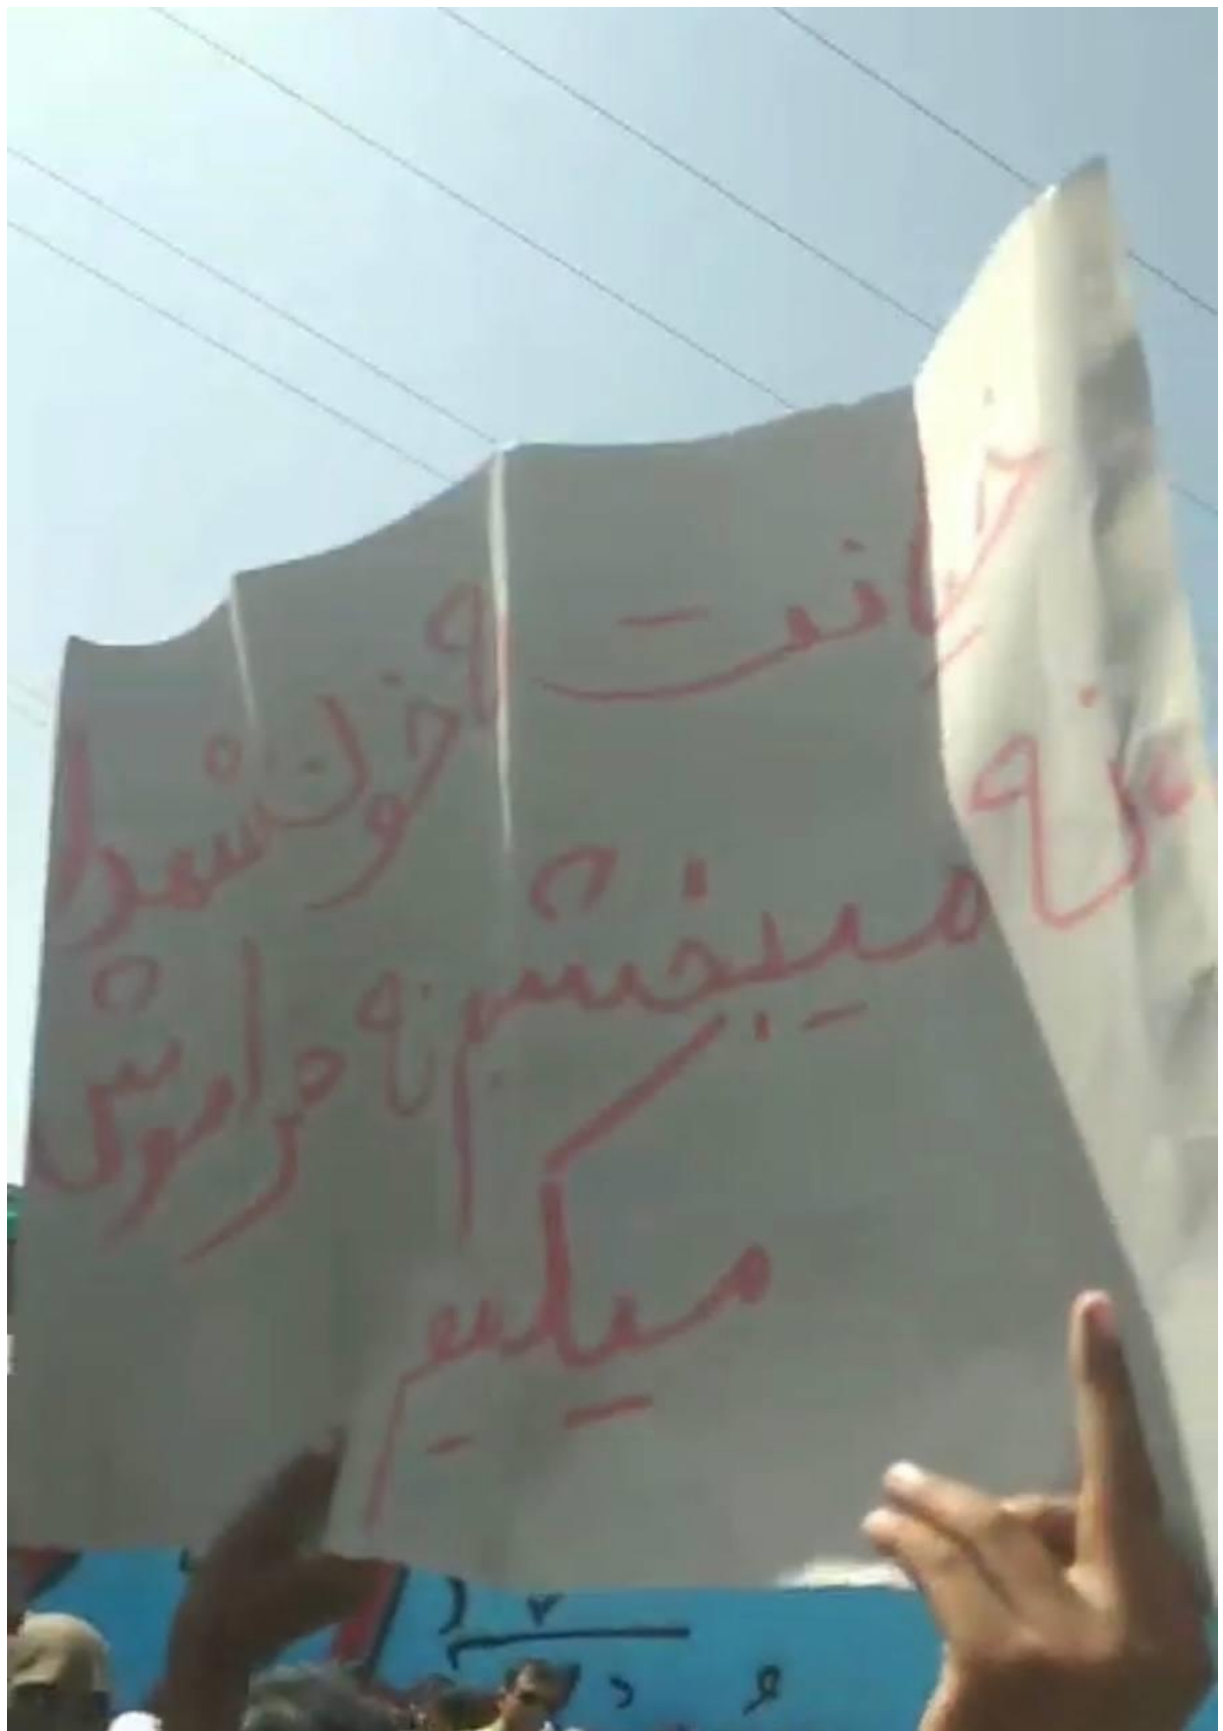 خیانت به خون شهدا
نه میبخشیم نه فراموش
میکنیم